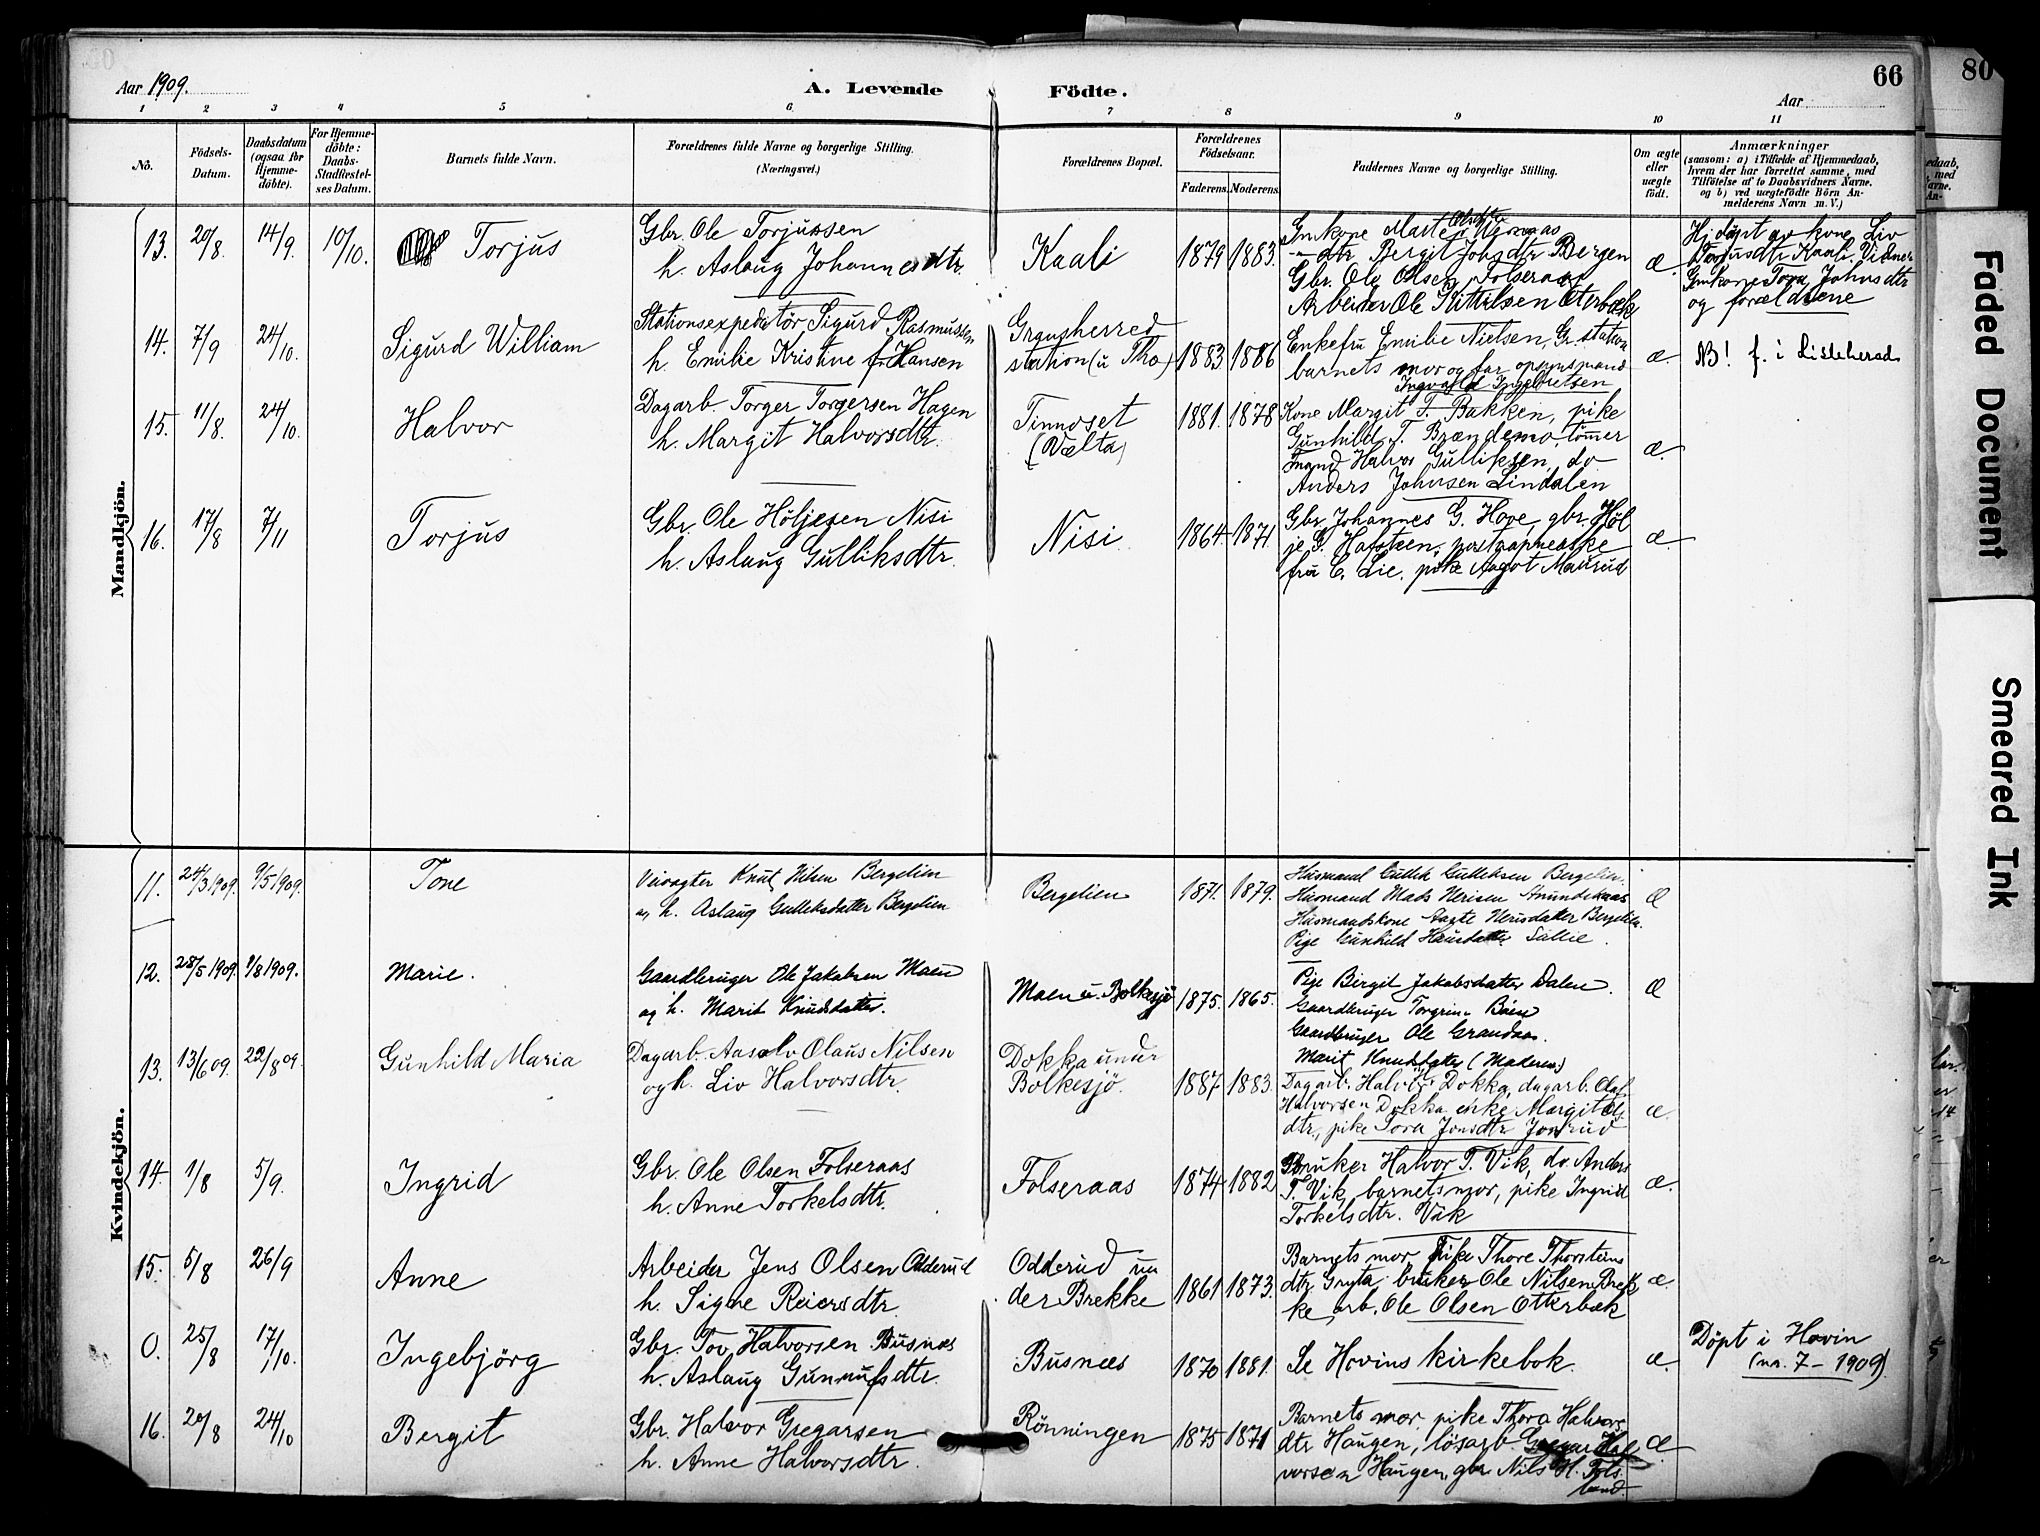 66
80
Aar 1909.
A. Levende Födte.
Aar
1 2 3 4 5 6 7 8 9 10 11
No.
Födsels-Datum.
Daabsdatum (ogsaa for Hjemme-döbte).
For Hjemme-döbte: Daabs-Stadfæstel-ses Datum.
Barnets fulde Navn.
Forældrenes fulde Navne og borgerlige Stilling.
(Næringsvei.)
Forældrenes Bopæl.
Forældrenes Födselsaar.
Faderens. Moderens.
Faddernes Navne og borgerlige Stilling.
Om ægte eller uægte födt.
Anmærkninger
(saasom: a) i Tilfælde af Hjemmedaab,
hvem der har forrettet samme, med
Tilföielse af to Daabsvidners Navne.
og b) ved uægtefödte Börn An-
melderens Navn m. V.)
Mandkjön.
13. 20/8 14/9. 10/10. Torjus
Gbr. Ole Torjussen
h. Aslaug Johannesdtr.
Kaali 1879 1883.
Gmkone Marte Olsdtr
dtr Bergit Johsdtr Bergen
Gbr. Ole Olsen Folseraas
Arbeider Ole Kittilsen Oterbæk
æ.
Hj.döpt av kone Liv
Torjusdtr Kaali. Vidner
Gmkone Tora Johnsdtr
og forældrene
14. 7/9 24/10. Sigurd William
Stationsexpeditör Sigurd Rasmussen
h. Emilie Kristine f. Hansen
Gransherred
station (u Tho) 1883 1886
Enkefru Emilie Nielsen, Gr. station
barnets mor og far opsynsmand
Ingvald Ingebretsen
æ
NB! f. i Lilleherad
15. 11/8. 24/10. Halvor
Dagarb. Torger Torgersen Hagen
h. Margit Halvorsdtr.
Tinnoset
(Vælta) 1881. 1878
Kone Margit T. Bakken, pike
Gunhild T. Brændemo, tömer
mand Halvor Gulliksen, do
Anders Johnsen Lindalen
æ.
16. 17/8 7/11 Torjus
Gbr. Ole Höljesen Nisi
h. Aslaug Gulliksdtr.
Nisi. 1864. 1871.
Gbr. Johannes G. Hove, gbr. Höl
je G. Hafsteen, postaapnerske
fru C. Lie, pike Aagot Maurud
æ.
Kvindekjön.
11. 24/3 1909. 9/5 1909. Tone
Veivogter Knut Nilsen Bergelien
og h. Aslaug Gulleksdatter Bergelien
Bergelien 1871. 1879.
Husmand Gullek Gulleksen Bergelien.
Husmand Mads Nerisen Amundsaas
Husmandskone Aagte Nerisdatter Bergelien.
Pige Gunhild Hansdatter Sillie.
Æ
12. 28/5 1909. 1/8 1909. Marie.
Gaardbruger Ole Jakobsen Moen
og h. Marit Knudsdatter.
Moen u. Bolkesjö 1875. 1865.
Pige Birgit Jakobsdatter Dalen.
Gaardbruger Torgrim Böen
Gaardbruger Ole Grandaas.
Marit Knudsdatter (Moderen)
Æ
13. 13/6 09. 22/8 09. Gunhild Maria
Dagarb. Aasolv Olaus Nilsen
og h. Liv Halvorsdtr.
Dokka under
Bolkesjö. 1887. 1883.
Dagarb. Halvor Dokka, dagarb. Olaf
Halvorsen Dokka, enke Margit Ols
dtr, pike Tora Jonsdtr Jonrud
æ.
14. 1/8 5/9. Ingrid
Gbr. Ole Olsen Folseraas
h. Anne Torkelsdtr.
Folseraas 1874 1882
Bruker Halvor T. Vik, do. Anders
T. Vik, barnets mor, pike Ingrid
Torkelsdtr. Vik
æ.
15. 5/8 26/9 Anne
Arbeider Jens Olsen Odderud
h. Signe Reiersdtr.
Odderud un
der Brekke 1861 1873.
Barnets mor, Pike Thore Thorsteins
dtr Gryta, bruker Ole Nilsen Brek
ke, arb. Ole Olsen Otterbæk
æ.
0. 25/8 17/10. Ingebjörg
Gbr. Tov Halvorsen Busnæs
h. Aslaug Gunnufsdtr.
Busnæs 1870 1881.
Se Hovins kirkebok.
æ.
Döpt i Hovin
(nr. 7 - 1909)
16. 20/8 24/10 Bergit
Gbr. Halvor Gregarsen
h. Anne Halvorsdtr.
Rönningen 1875 1871
Barnets mor, pike Thora Halvors
dtr Haugen, lösarb. Gregar Hal
vorsen Haugen, gbr Nils H. Fols
land.
Æ.
Faded Document
Smeared Ink